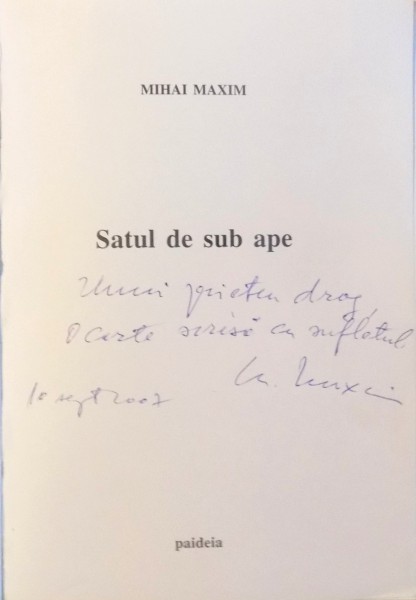 MIHAI MAXIM
Satul de sub ape
Unui prieten drag,
O carte scrisă cu sufletul
M. Maxim
10 sept 2007
paideia